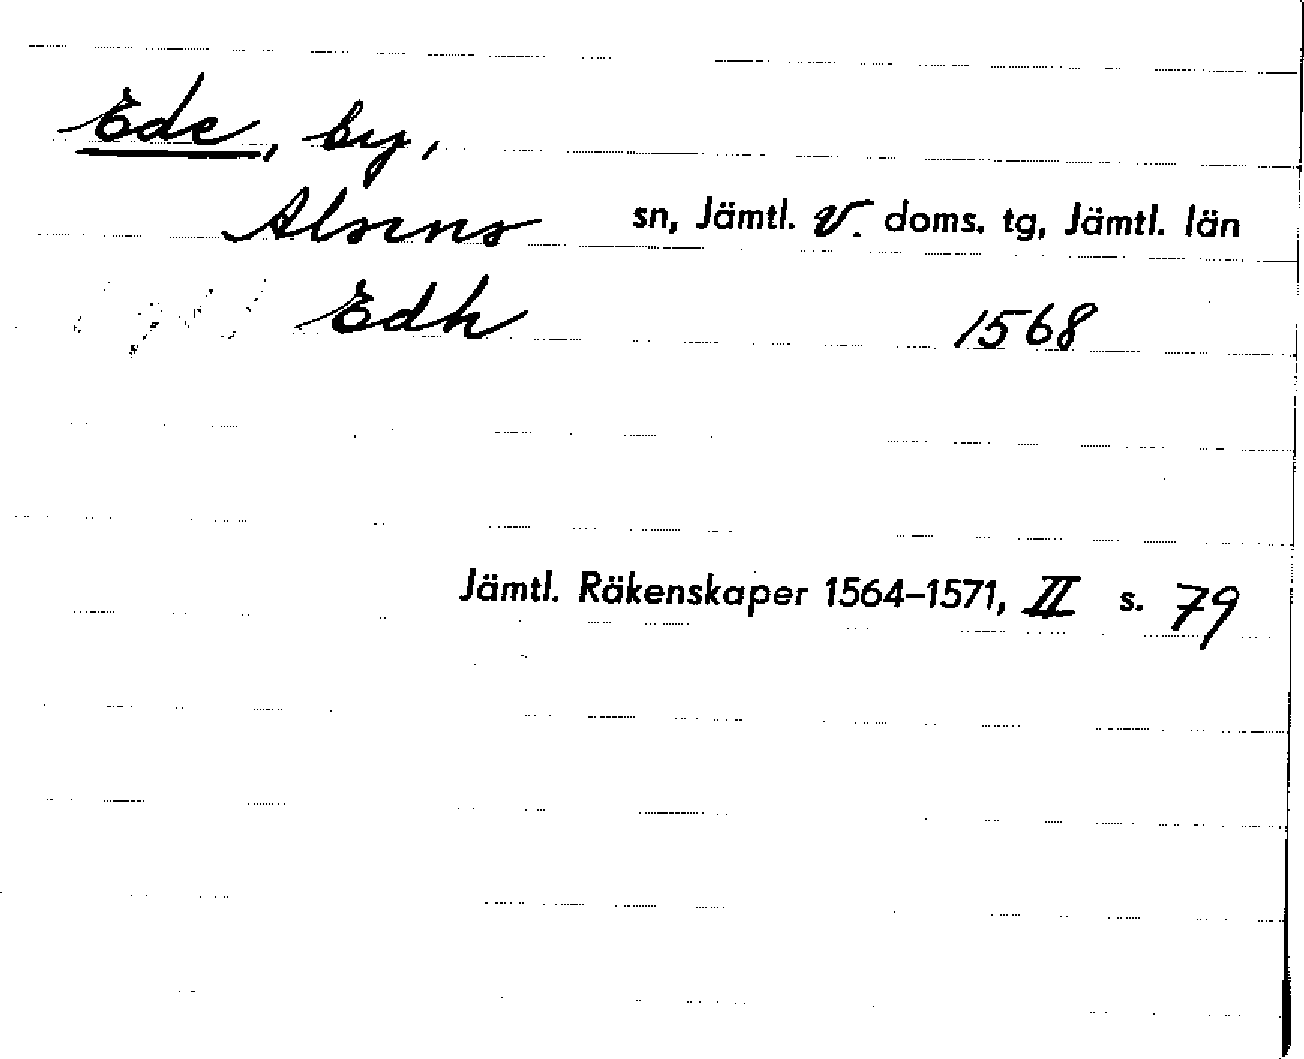 Ede, by,
Alsens sn, Jämtl. v. doms. tg, Jämtl. län
Edh 1568
Jämtl. Räkenskaper 1564–1571, II s. 79